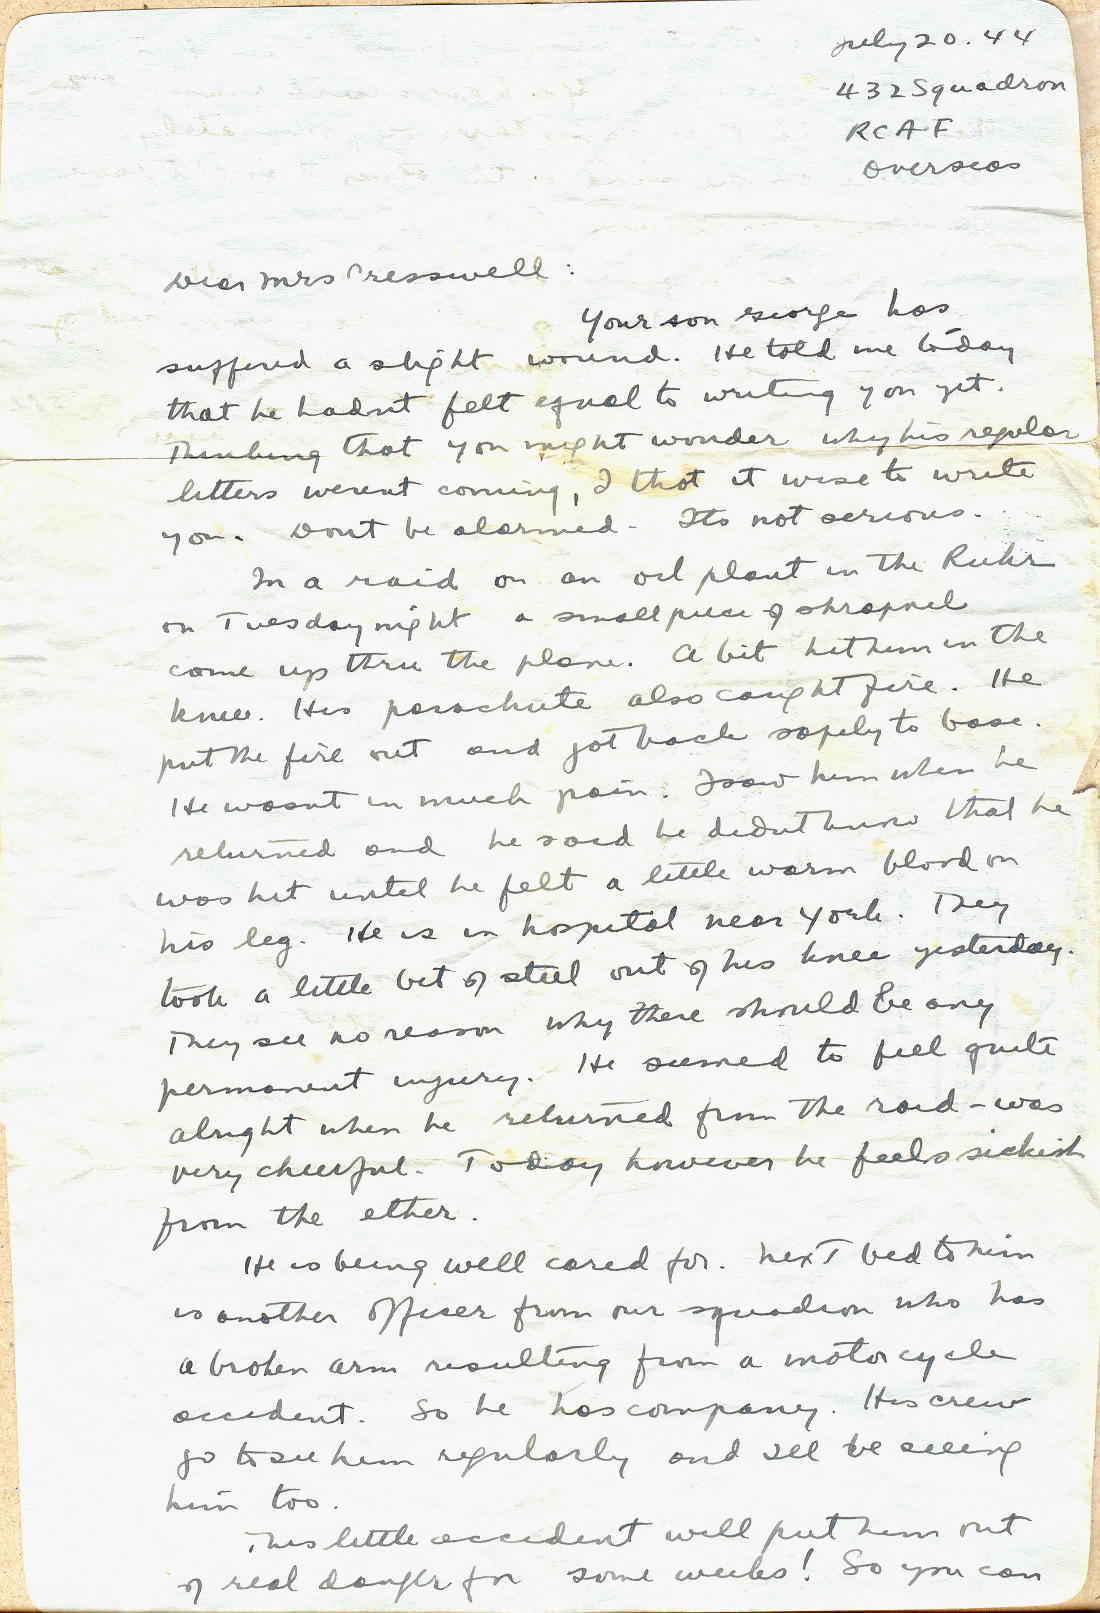 July 20. 44
432 Squadron
RCAF
Overseas
Dear Mrs Cresswell :
Your son George has
suffered a slight wound. He told me today
that he hadnt felt equal to writing you yet.
Thinking that you might wonder why his regular
letters werent coming, I that it wise to write
you. Dont be alarmed - Its not serious.
In a raid on an oil plant in the Ruhr
on Tuesday night a small piece of shrapnel
come up thru the plane. A bit hit him in the
knee. His parachute also caught fire. He
put the fire out and got back safely to base.
He wasnt in much pain. I saw him when he
returned and he said he didnt know that he
was hit until he felt a little warm blood on
his leg. He is in hospital near York. They
took a little bit of steel out of his knee yesterday.
They see no reason why there should be any
permanent injury. He seemed to feel quite
alright when he returned from the raid - was
very cheerful. Today however he feels sickish
from the ether.
He is being well cared for. Next bed to him
is another officer from our squadron who has
a broken arm resulting from a motorcycle
accident. So he has company. His crew
go to see him regularly and Ill be seeing
him too.
This little accident will put him out
of real danger for some weeks! So you can